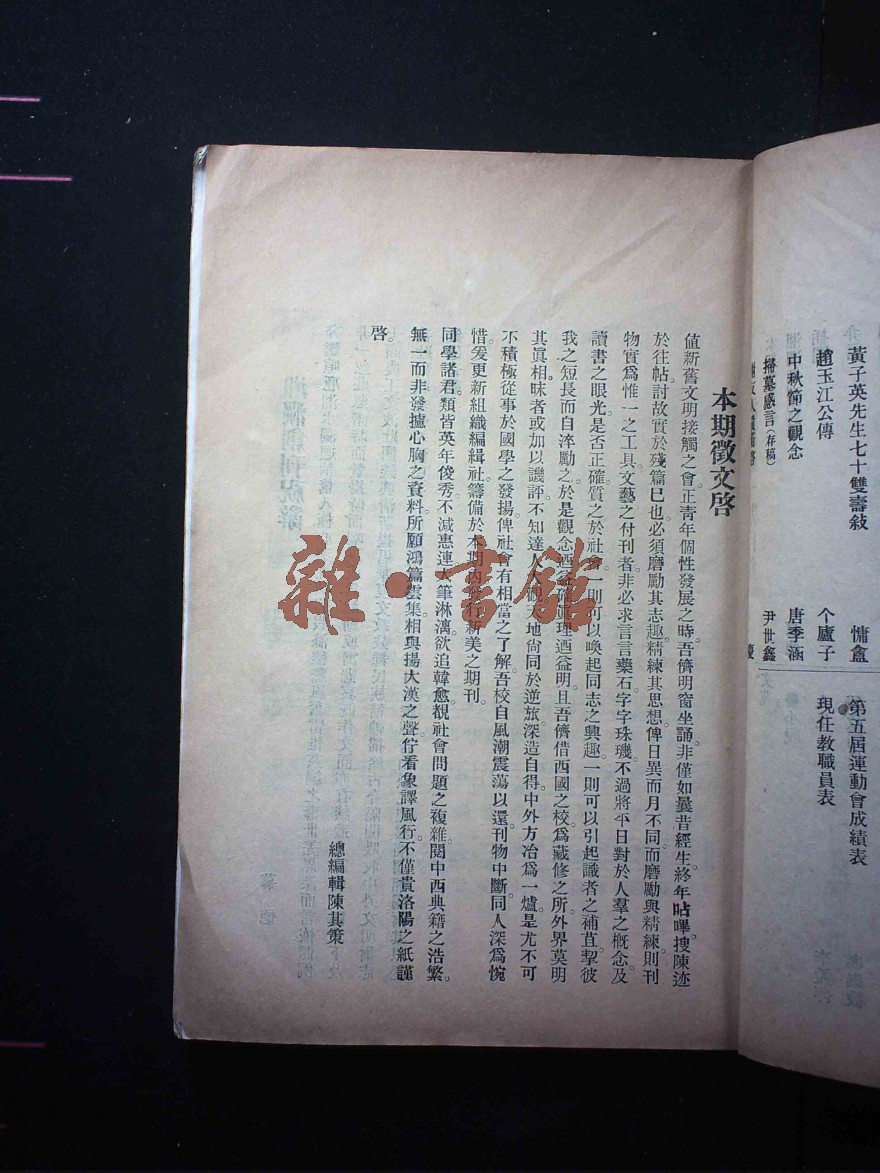 黃子英先生七十雙壽敍 慵盦
趙玉江公傳 个廬子
中秋節之觀念 唐季涵
掃墓感言(存稿) 尹世鑫
第五屆運動會成績表
現任教職員表
本期徵文啓
値新舊文明接觸之會。正靑年個性發展之時。吾儕明窗坐誦。非僅如曩昔經生。終年呫嗶。搜陳迹
於往帖。討故實於殘篇已也。必須磨勵其志趣。精練其思想。俾日異而月不同。而磨勵與精練。則刊
物實爲惟一之工具。文藝之付刊者。非必求言言藥石。字字珠璣。不過將平日對於人羣之槪念。及
讀書之眼光。是否正確。質之於社會。一則可以喚起同志之興趣。一則可以引起識者之補苴。挈彼
我之短長而自淬勵之。於是觀念迺益確。眞理迺益明。且吾儕借西國之校。爲藏修之所。外界莫明
其眞相。昧者或加以譏評。不知達人大觀。天地尙同於逆旅。深造自得。中外方冶爲一爐。是尤不可
不積極從事於國學之發揚。俾社會有相當之了解。吾校自風潮震蕩以還。刊物中斷。同人深爲惋
惜。爰更新組織編緝社。籌備於本期內發行新美之期刊。
同學諸君。類皆英年俊秀。不減惠連。大筆淋漓。欲追韓愈。覩社會問題之複雜。閱中西典籍之浩繁。
無一而非發攄心胸之資料。所願鴻篇雲集。相與揚大漢之聲。佇看象譯風行。不僅貴洛陽之紙。謹
啓。
總編輯陳其策
雜·書館